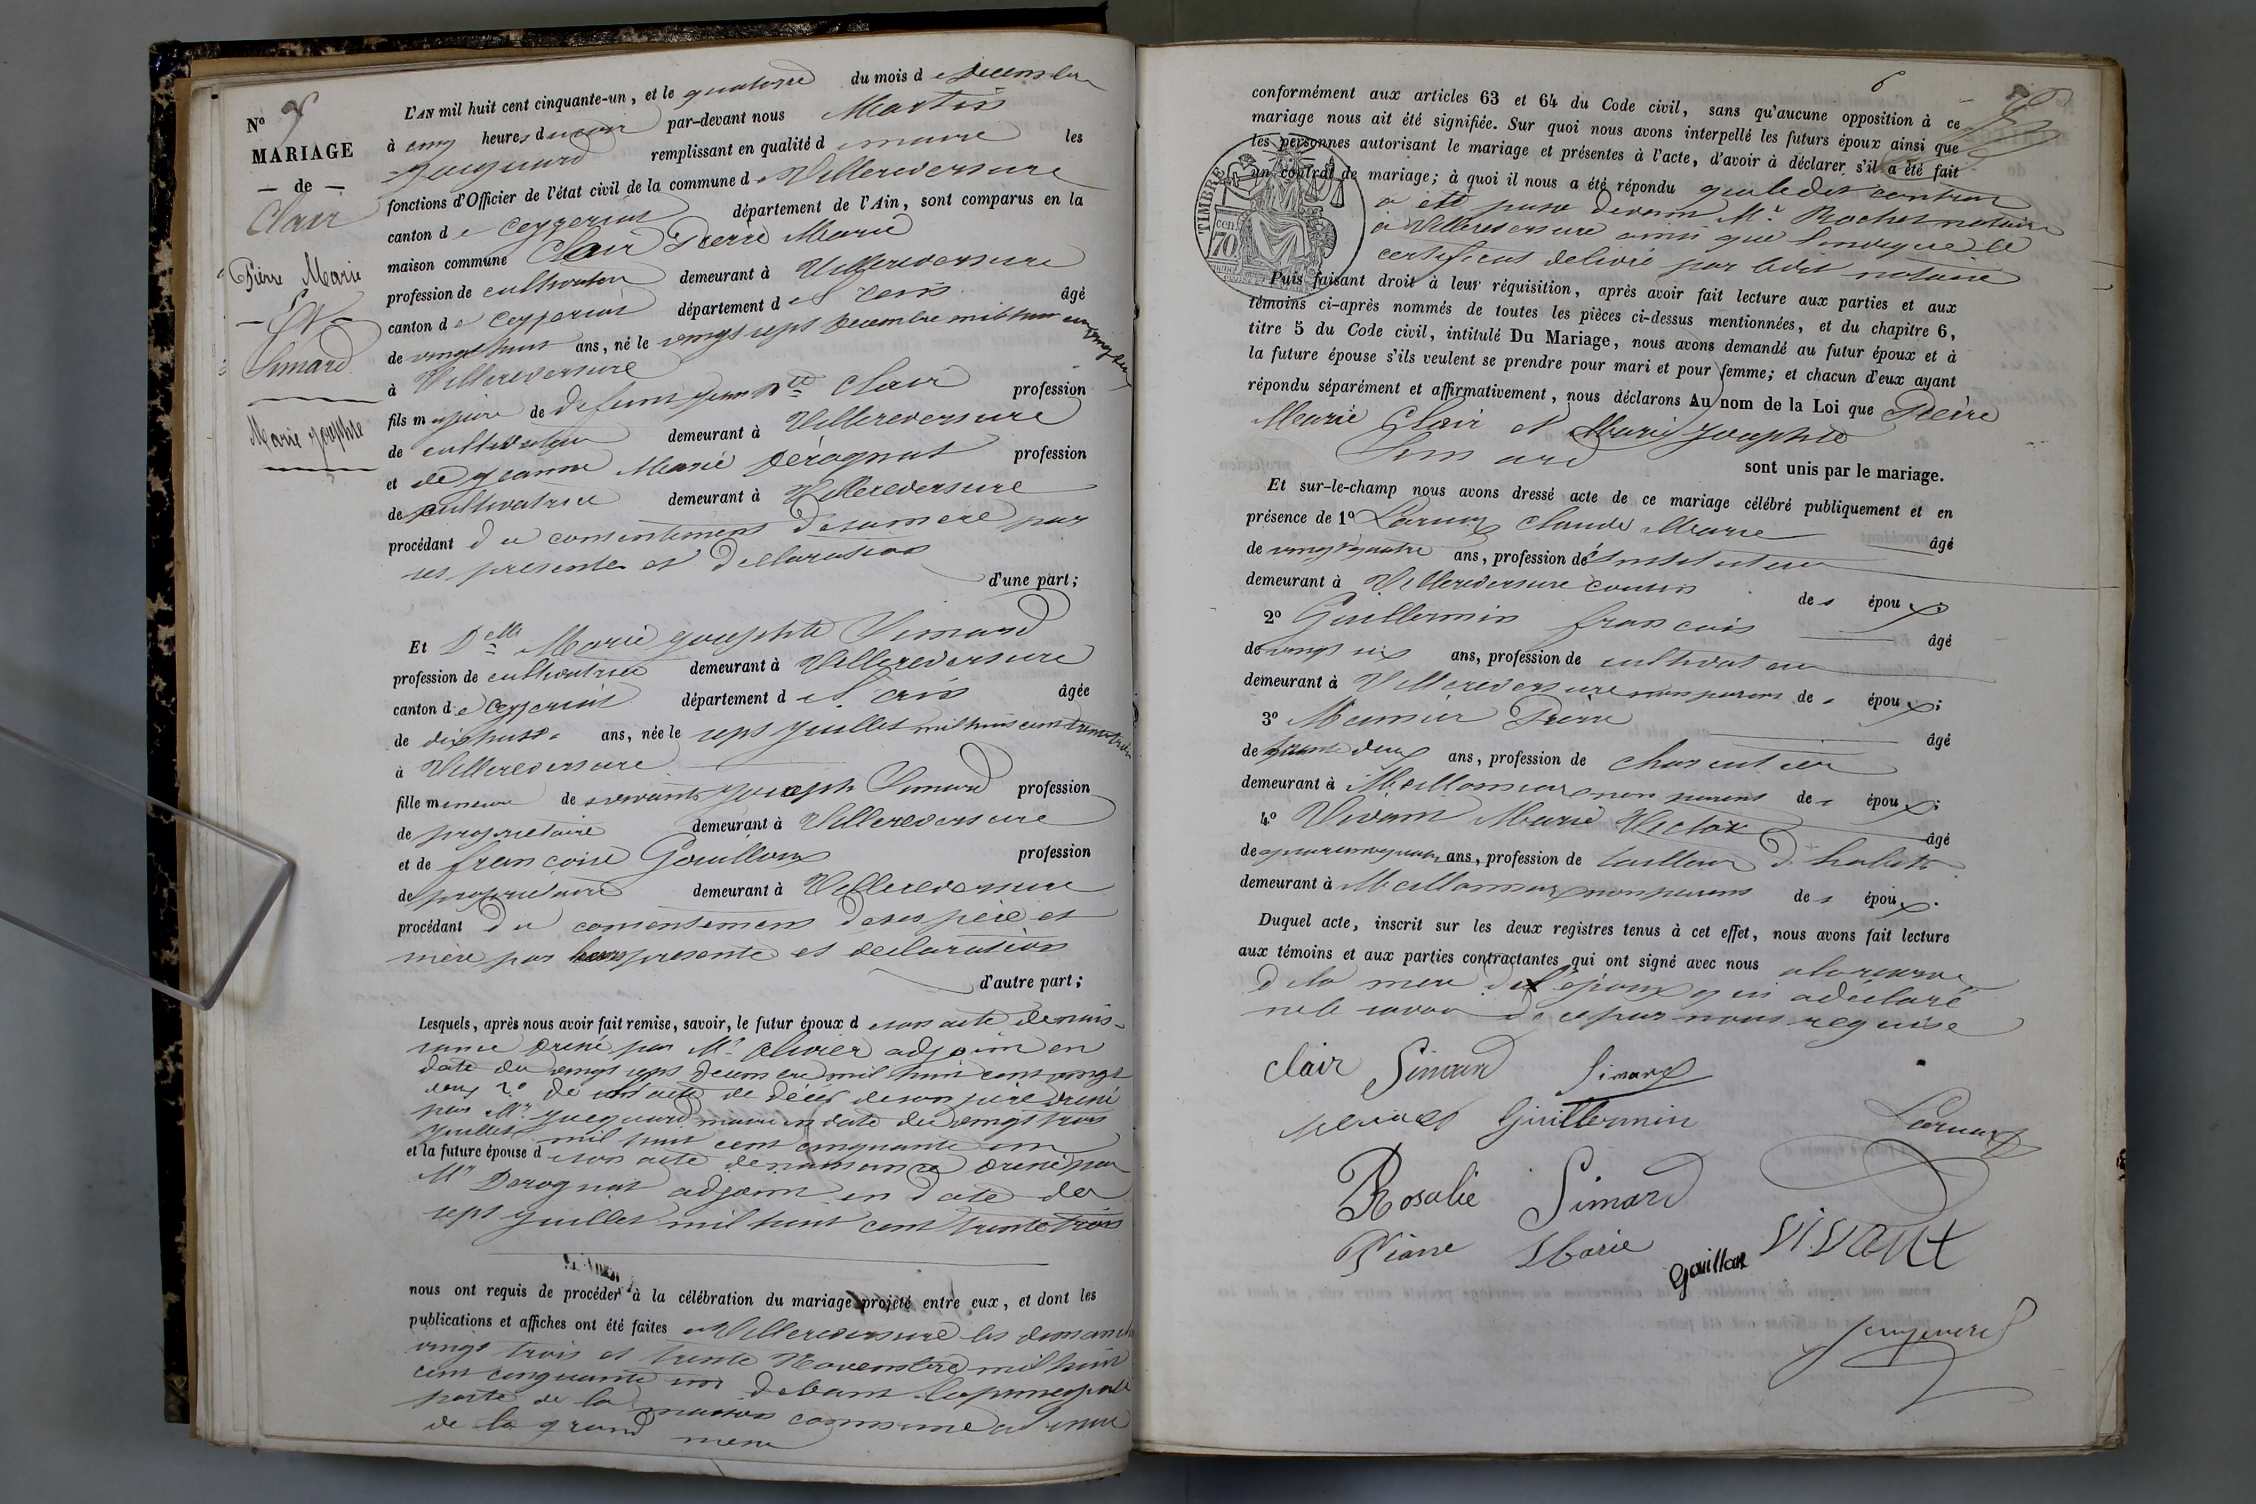 N° 8
MARIAGE
— de —
Clair
Pierre Marie
— Et —
Simard
Marie Josephte
L'AN mil huit cent cinquante-un, et le quatorze du mois de Decembre
à cinq heures du soir par-devant nous Martin
Jacquard remplissant en qualité de maire les
fonctions d'Officier de l'état civil de la commune de Villereversure
canton de Ceyzeriat département de l'Ain, sont comparus en la
maison commune Clair Pierre Marie
profession de cultivateur demeurant à Villereversure
canton de Ceyzeriat département de l'ain âgé
de vingt huit ans, né le vingt sept Decembre mil huit cent vingt deux
à Villereversure
fils majeur de defunt Jean Bte Clair profession
de cultivateur demeurant à Villereversure
et de Jeanne Marie Dérognat profession
de cultivatrice demeurant à Villereversure
procédant du consentement de sa mere par
ses presente et declaration
d'une part;
Et Delle Marie Josephte Simard
profession de cultivatrice demeurant à Villereversure
canton de Ceyzeriat département de l'ain âgée
de dix huit ans, née le sept Juillet mil huit cent trente trois
à Villereversure
fille mineure de vivants Joseph Simard profession
de proprietaire demeurant à Villereversure
et de francoise Gouilloux profession
de proprietaire demeurant à Villereversure
procédant du consentement de ses père et
mère par leurs presente et declaration
d'autre part;
Lesquels, après nous avoir fait remise, savoir, le futur époux de son acte de nais-
sance dréné par Mr olivier adjoint en
date du vingt sept Decembre mil huit cent vingt
deux 2° de acte de décés de son père dréné
par Mr Jacquard maire en date du vingt trois
Juillet mil huit cent cinquante un
et la future épouse de son acte de naissance dréné par
Mr Derognat adjoint en date du
sept Juillet mil huit cent trente trois
nous ont requis de procéder à la célébration du mariage projeté entre eux, et dont les
publications et affiches ont été faites à Villereversure les dimanches
vingt trois et trente Novembre mil huit
cent cinquante un devant la principale
porte de la maison commune
de la grand
6
conformément aux articles 63 et 64 du Code civil, sans qu'aucune opposition à ce
mariage nous ait été signifiée. Sur quoi nous avons interpellé les futurs époux ainsi que
les personnes autorisant le mariage et présentes à l'acte, d'avoir à déclarer s'il a été fait
un contrat de mariage; à quoi il nous a été répondu que ledit contrat
a été passé devant Mr Rochet notaire
à Villereversure ainsi que l'indique le
certificat delivré par ledit notaire
TIMBRE
70 cen
Puis faisant droit à leur réquisition, après avoir fait lecture aux parties et aux
témoins ci-après nommés de toutes les pièces ci-dessus mentionnées, et du chapitre 6,
titre 5 du Code civil, intitulé Du Mariage, nous avons demandé au futur époux et à
la future épouse s'ils veulent se prendre pour mari et pour femme; et chacun d'eux ayant
répondu séparément et affirmativement, nous déclarons Au nom de la Loi que Pierre
Marie Clair et Marie Josephte
Simard
sont unis par le mariage.
Et sur-le-champ nous avons dressé acte de ce mariage célébré publiquement et en
présence de 1° Claude Marie âgé
de vingt quatre ans, profession de instituteur
demeurant à Villereversure cousin des époux;
2° Guillermin francois âgé
de vingt six ans, profession de cultivateur
demeurant à Villereversure non parent des époux;
3° Meunier Pierre âgé
de trente deux ans, profession de charpentier
demeurant à Meillonnaz non parent des époux;
4° Vivant Marie Victor âgé
de quarante quatre ans, profession de tailleur d'habits
demeurant à Meillonnaz non parent des époux.
Duquel acte, inscrit sur les deux registres tenus à cet effet, nous avons fait lecture
aux témoins et aux parties contractantes qui ont signé avec nous a la reserve
de la mere de l'époux qui a déclaré
ne le savoir de ce par nous requise
Clair Simard Simard
Guillermin
Rosalie Simard
Pierre Marie
Gouillon Vivant